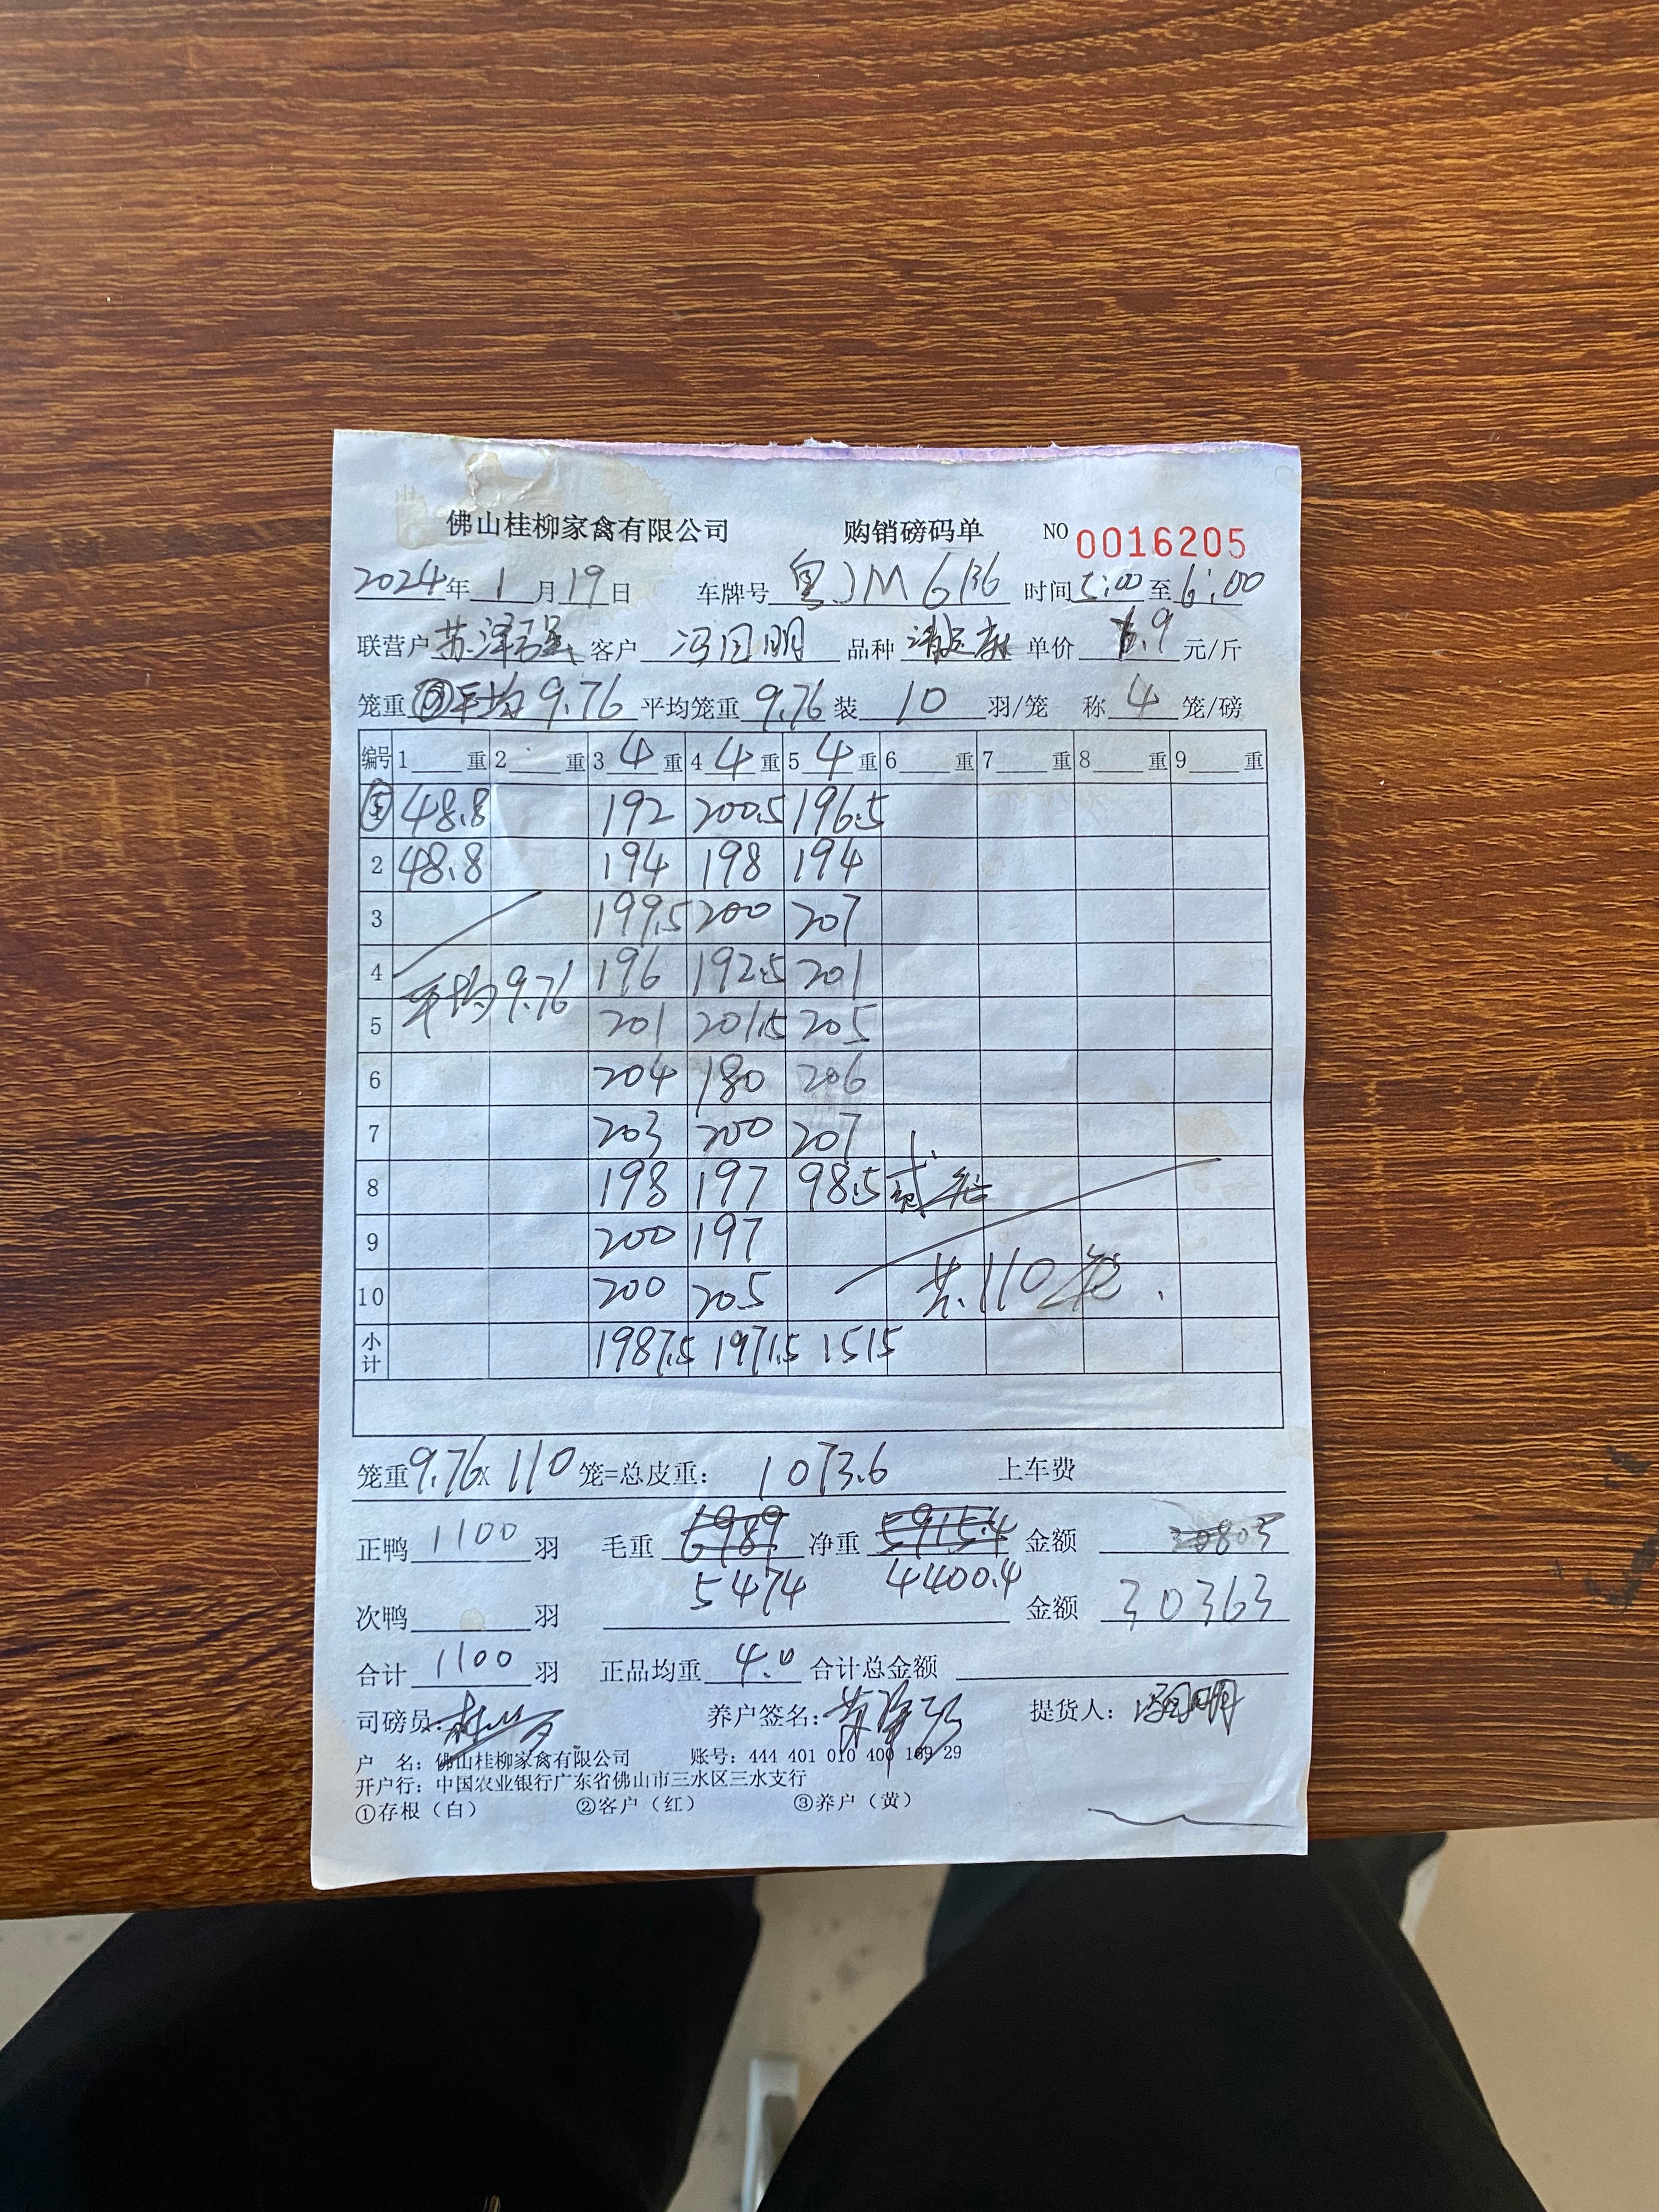 佛山桂柳家禽有限公司 购销磅码单 NO 0016205
2024年1月19日 车牌号 粤JM6136 时间5:00至6:00
联营户 苏泽强 客户 冯国明 品种 单价 6.9 元/斤
笼重 平均9.76 平均笼重9.76装10羽/笼 称4笼/磅
编号 1 重 2 重 3 4 重 4 4 重 5 4 重 6 重 7 重 8 重 9 重
1 48.8 192 200.5 196.5
2 48.8 194 198 194
3 199.5 200 207
4 196 192.5 201
平均9.76
5 201 201.5 205
6 204 180 206
7 203 200 207
8 198 197 98.5 贰笼
9 200 197
10 200 205 共110笼.
小计 1987.5 1971.5 1515
笼重9.76x110笼=总皮重: 1073.6 上车费
正鸭1100羽 毛重 6989 净重 5915.4 金额
5474 4400.4
次鸭 羽 金额 30363
合计1100羽 正品均重4.0合计总金额
司磅员: 养户签名: 苏泽强 提货人: 冯国明
户 名: 佛山桂柳家禽有限公司 账号: 444 401 010 400 169 29
开户行: 中国农业银行广东省佛山市三水区三水支行
①存根（白） ②客户（红） ③养户（黄）